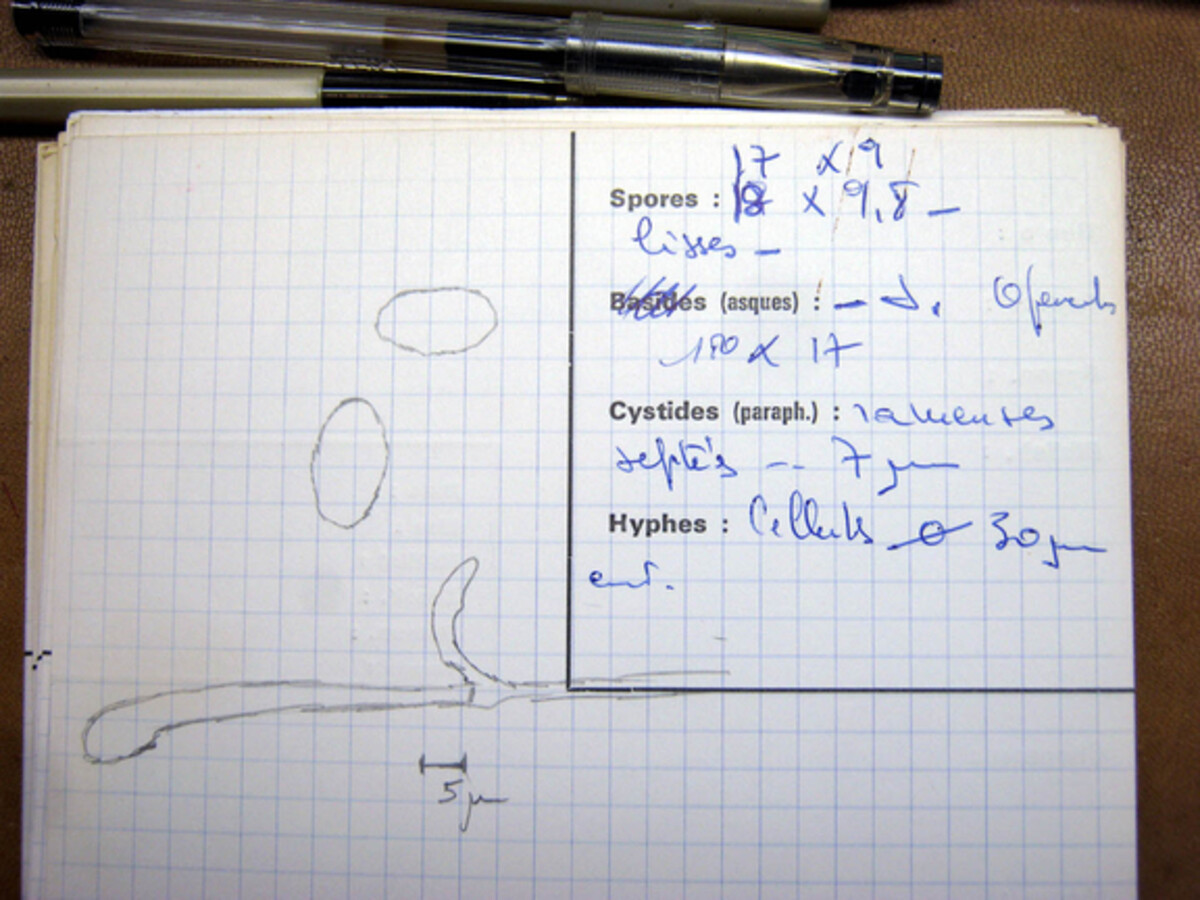 17 x 9
Spores : 18 x 9,8 –
lisses –
Basides (asques) : – J.
190 x 17
Cystides (paraph.) : rameuses
septés -- 7 µm
Hyphes : Cellules ø 30 µm
env.
5 µm